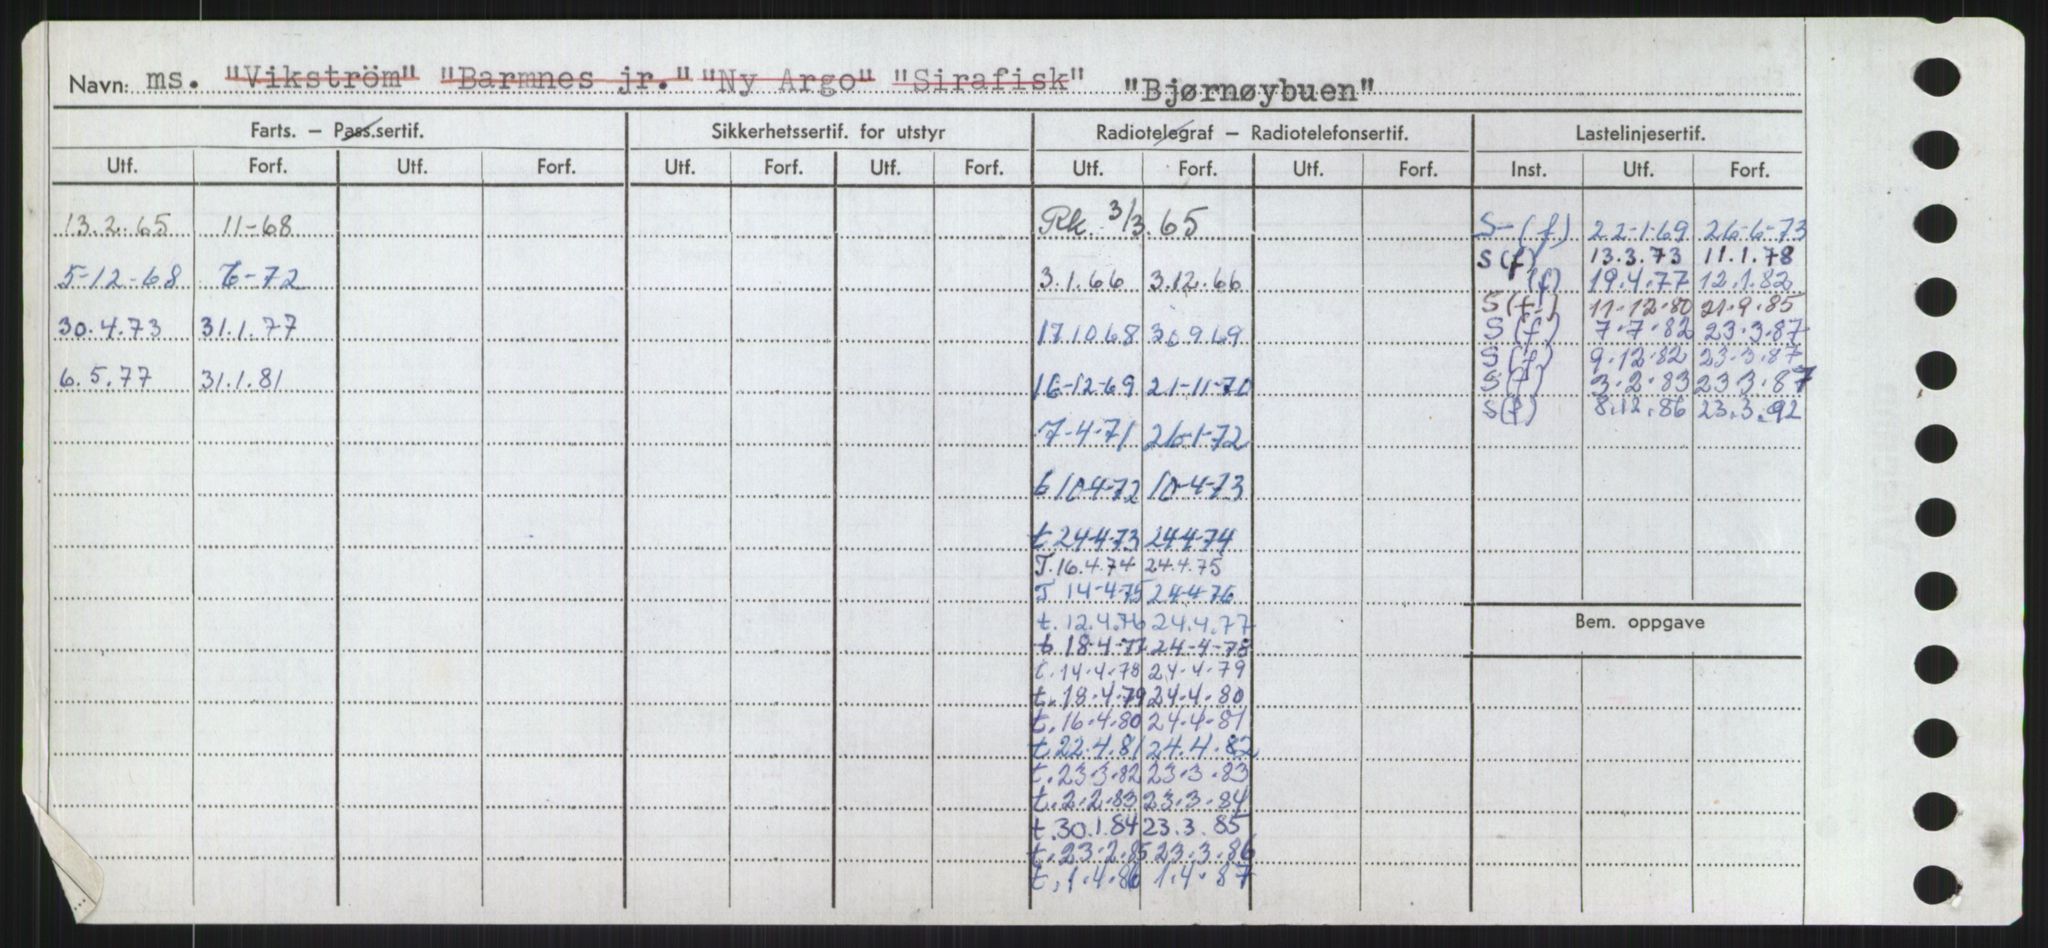 Navn: ms. "Vikström" "Barmnes jr." "Ny Argo" "Sirafisk" "Bjørnøybuen"
Farts. – Pass.sertif. Sikkerhetssertif. for utstyr Radiotelegraf – Radiotelefonsertif. Lastelinjesertif.
Utf. Forf. Utf. Forf. Utf. Forf. Utf. Forf. Utf. Forf. Utf. Forf. Inst. Utf. Forf.
13.2.65 11-68
5-12-68 6-72
30.4.73 31.1.77
6.5.77 31.1.81
Rk. 3/3.65
3.1.66 3.12.66
17.10.68 30.9.69
16-12-69 21-11-70
7-4-71 26-1-72
t 10-4-72 10-4-73
t 24-4-73 24-4-74
T. 16.4.74 24.4.75
T 14-4-75 24-4-76
t. 12.4.76 24.4.77
t 18-4-77 24-4-78
t. 14.4.78 24.4.79
t. 18.4.79 24.4.80
t. 16.4.80 24.4.81
t. 22.4.81 24.4.82
t. 23.3.82 23.3.83
t. 2.2.83 23.3.84
t. 30.1.84 23.3.85
t. 23.2.85 23.3.86
t. 1.4.86 1.4.87
S-(f) 22-1-69 26-6-73
S(f) 13.3.73 11.1.78
(f) 19.4.77 12.1.82
S(f) 11.12.80 21.9.85
S(f) 7.7.82 23.3.87
S(f) 9.12.82 23.3.87
S(f) 3.2.83 23.3.87
S(f) 8.12.86 23.3.92
Bem. oppgave